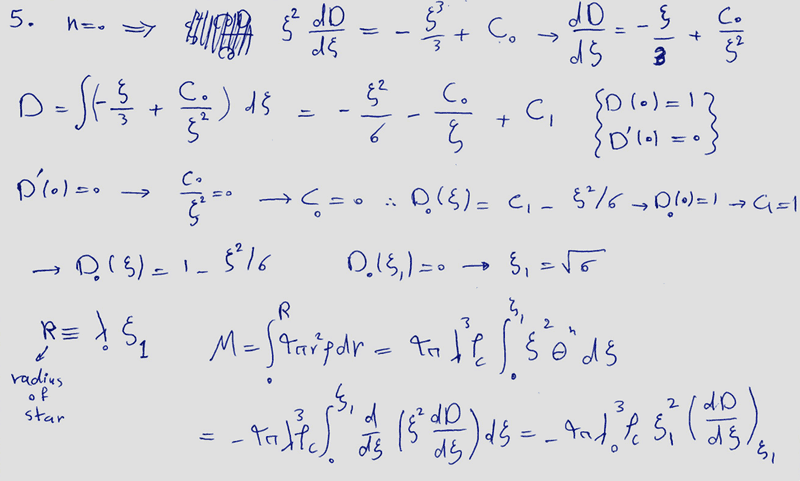 5. n=0 ⟹ ξ² dD/dξ = - ξ³/3 + C₀ → dD/dξ = - ξ/3 + C₀/ξ²
D = ∫(- ξ/3 + C₀/ξ²) dξ = - ξ²/6 - C₀/ξ + C₁ {D(0) = 1
D'(0) = 0}
D'(0) = 0 → C₀/ξ² = 0 → C₀ = 0 ∴ D₀(ξ) = C₁ - ξ²/6 → D₀(0) = 1 → C₁ = 1
→ D₀(ξ) = 1 - ξ²/6 D₀(ξ₁) = 0 → ξ₁ = √6
R ≡ λ₀ ξ₁ M = ∫₀ᴿ 4πr²ρdr = 4π λ³ρc ∫₀^ξ₁ ξ² θⁿ dξ
radius
of
star
= - 4πλ³ρc ∫₀^ξ₁ d/dξ (ξ² dD/dξ) dξ = - 4πλ₀³ρc ξ₁² (dD/dξ)ξ₁